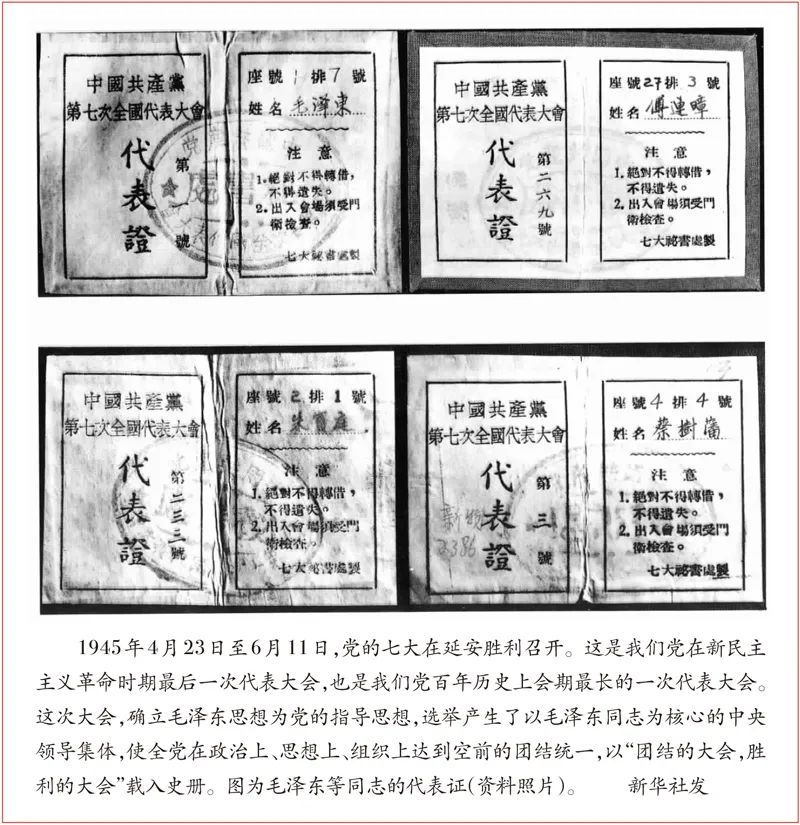 中國共產黨
第七次全國代表大會
代表證
第一號
座號1排7號
姓名毛澤東
注意
1.絕對不得轉借，
不得遺失。
2.出入會場須受門
衛檢查。
七大祕書處製
中國共產黨
第七次全國代表大會
代表證
第二六九號
座號27排3號
姓名傅連暲
注意
1.絕對不得轉借，
不得遺失。
2.出入會場須受門
衛檢查。
七大祕書處製
中國共產黨
第七次全國代表大會
代表證
第二三三號
座號2排1號
姓名朱寶庭
注意
1.絕對不得轉借，
不得遺失。
2.出入會場須受門
衛檢查。
七大祕書處製
中國共產黨
第七次全國代表大會
代表證
第三號
新物
3386
座號4排4號
姓名蔡樹藩
注意
1.絕對不得轉借，
不得遺失。
2.出入會場須受門
衛檢查。
七大祕書處製
1945年4月23日至6月11日，党的七大在延安胜利召开。这是我们党在新民主
主义革命时期最后一次代表大会，也是我们党百年历史上会期最长的一次代表大会。
这次大会，确立毛泽东思想为党的指导思想，选举产生了以毛泽东同志为核心的中央
领导集体，使全党在政治上、思想上、组织上达到空前的团结统一，以“团结的大会，胜
利的大会”载入史册。图为毛泽东等同志的代表证（资料照片）。 新华社发